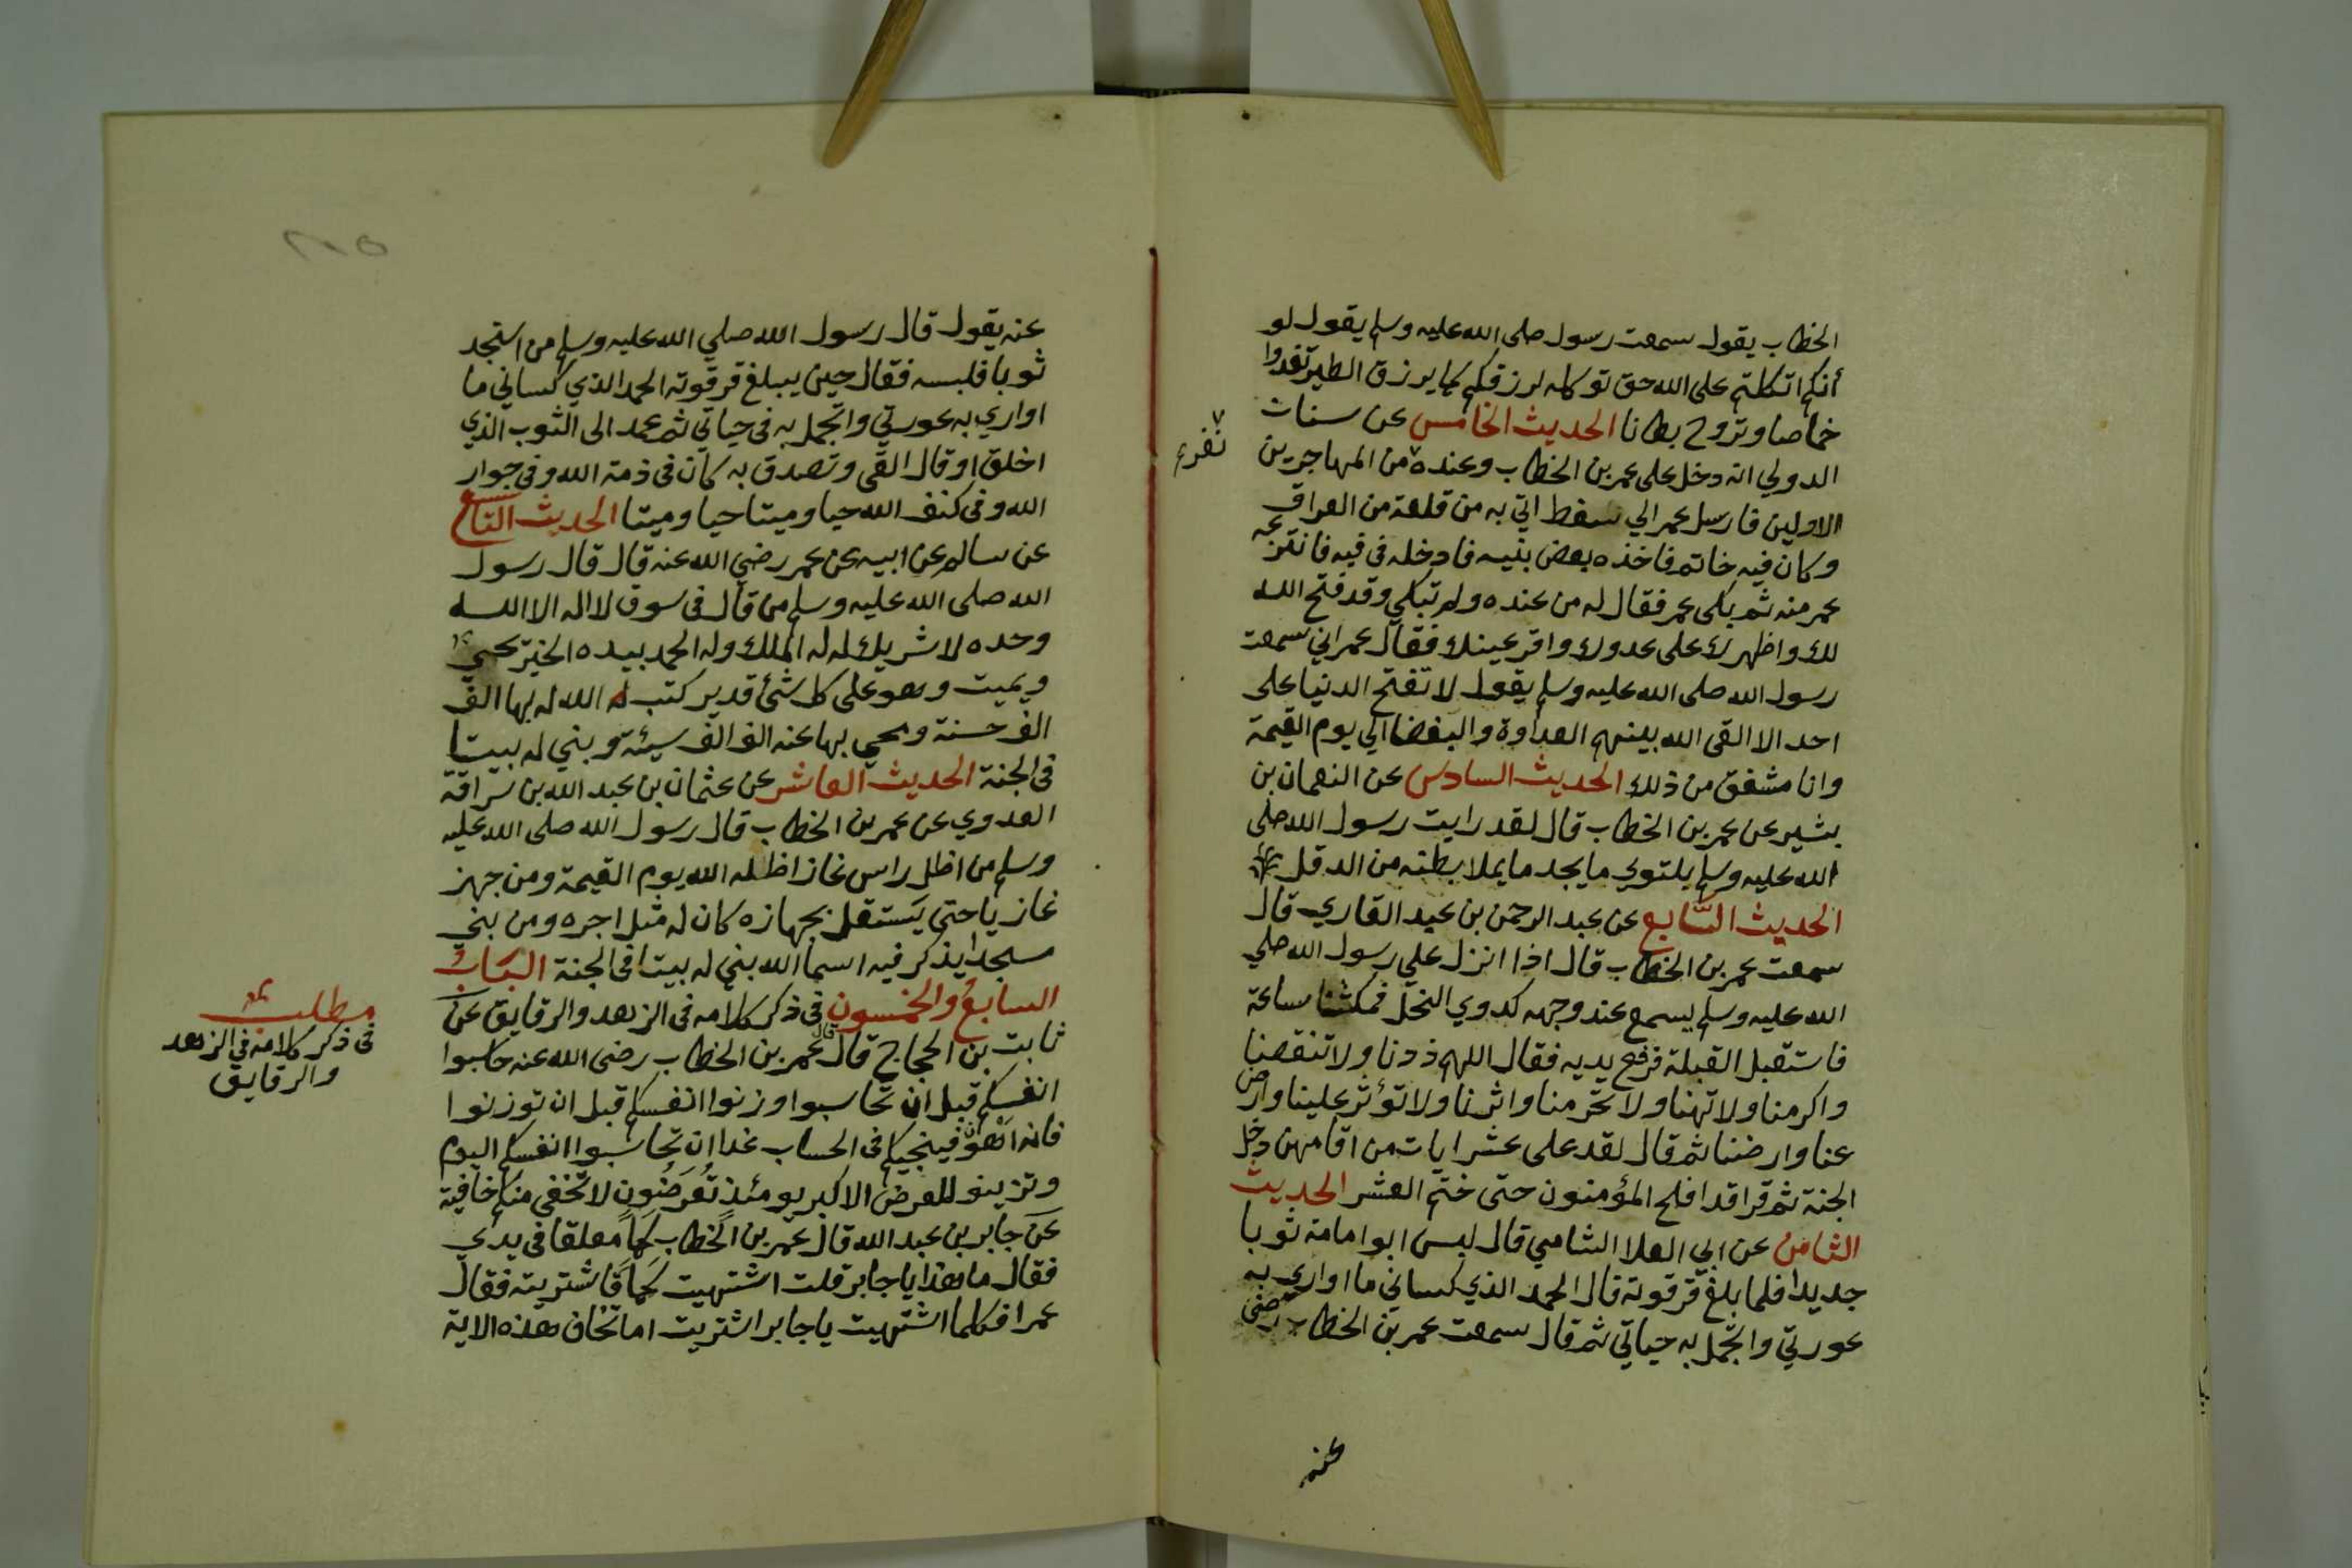 الخطاب يقول سمعت رسول صلى الله عليه وسلم يقول لو
أنكم اتكلتم على الله حق توكله لرزقكم كما يرزق الطير تغدوا
خماصا وتروح بطانا الحديث الخامس عن سنات
الدولي انه دخل على عمر بن الخطاب وعنده من المهاجرين
نفر
الاولين فارسل عمر الي سفط اتي به من قلعة من العراق
وكان فيه خاتم فاخذه بعض بنيه فادخله في فيه فانتزعه
عمر منه ثم بكى عمر فقال له من عنده ولم تبكي وقد فتح الله
لك واظهرك على عدوك واقر عينك فقال عمر اني سمعت
رسول الله صلى الله عليه وسلم يقول لا تفتح الدنيا على
احد الا القى الله بينهم العداوة والبغضا الي يوم القيمة
وانا مشفق من ذلك الحديث السادس عن النعمان بن
بشير عن عمر بن الخطاب قال لقد رايت رسول الله صلى
الله عليه وسلم يلتوي ما يجد ما يملا بطنه من الدقل
الحديث السابع عن عبد الرحمن بن عبد القاري قال
سمعت عمر بن الخطاب قال اذا انزل علي رسول الله صلي
الله عليه وسلم يسمع عند وجهه كدوي النحل فمكثنا ساعة
فاستقبل القبلة فرفع يديه فقال اللهم زدنا ولا تنقصنا
واكرمنا ولا تهنا ولا تحرمنا واثرنا ولا تؤثر علينا وارض
عنا وارضنا ثم قال لقد على عشر ايات من اقامهن دخل
الجنة ثم قرا قد افلح المؤمنون حتى ختم العشر الحديث
الثامن عن ابي العلا الشامي قال لبس ابو امامة ثوبا
جديدا فلما بلغ قرقوته قال الحمد الذي كساني ما اواري به
عورتي واتجمل به حياتي ثم قال سمعت عمر بن الخطاب رضى
عنه
عنه يقول قال رسول الله صلي الله عليه وسلم من استجد
ثوبا فلبسه فقال حين يبلغ قرقوته الحمد الذي كساني ما
اواري به عورتي واتجمل به في حياتي ثم عمد الى الثوب الذي
اخلق او قال القى وتصدق به كان في ذمة الله وفي جوار
الله وفي كنف الله حيا وميتا حيا وميتا الحديث التاسع
عن سالم عن ابيه عن عمر رضي الله عنه قال قال رسول
الله صلى الله عليه وسلم من قال في سوق لا اله الا الله
وحده لا شريك له له الملك وله الحمد بيده الخير يحيي
ويميت وهو على كل شئ قدير كتب الله له بها الف
الف حسنة ومحي بها عنه الف الف سيئة وبني له بيتا
في الجنة الحديث العاشر عن عثمان بن عبد الله بن سراقة
العدوي عن عمر بن الخطاب قال رسول الله صلى الله عليه
وسلم من اظل راس غاز اظله الله يوم القيمة ومن جهز
غازيا حتى يستقل بجهازه كان له مثل اجره ومن بني
مسجدا يذكر فيه اسما الله بني له بيتا في الجنة الباب
السابع والخمسون في ذكر كلامه في الزهد والرقايق عن
ثابت بن الحجاج قال قال عمر بن الخطاب رضى الله عنه حاسبوا
انفسكم قبل ان تحاسبوا وزنوا انفسكم قبل ان توزنوا
فانه اهون فينجيكم في الحساب غدا ان تحاسبوا انفسكم اليوم
وتزينو للعرض الاكبر يومئذ تُعرَضُون لا تخفى منكم خافية
عن جابر بن عبد الله قال عمر بن الخطاب لحمًا معلقا في يدي
فقال ما هذا يا جابر قلت اشتهيت لحمًا فاشتريته فقال
عمر افكلما اشتهيت يا جابر اشتريت اما تخاف هذه الاية
مطلب
في ذكر كلامه في الزهد
والرقايق